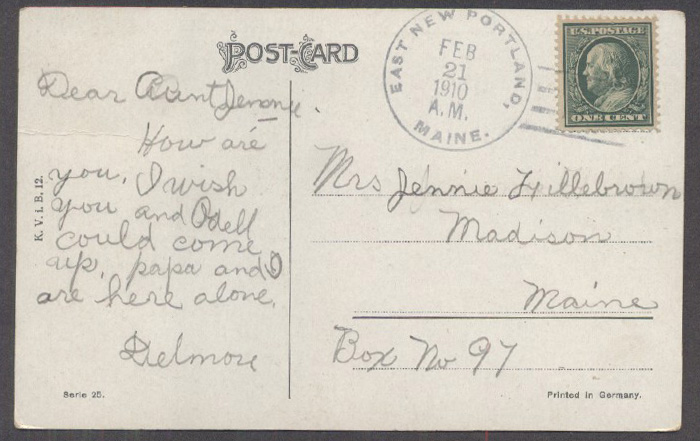 POST-CARD
EAST NEW PORTLAND,
FEB
21
1910
A.M.
MAINE.
U.S. POSTAGE
ONE CENT
Dear Aunt Jennie.
How are
you, I wish
you and Odell
could come
up, papa and I
are here alone.
Delmore
K. V. i. B. 12.
Mrs Jennie Hillebrown
Madison
Maine
Box No 97
Serie 25.
Printed in Germany.